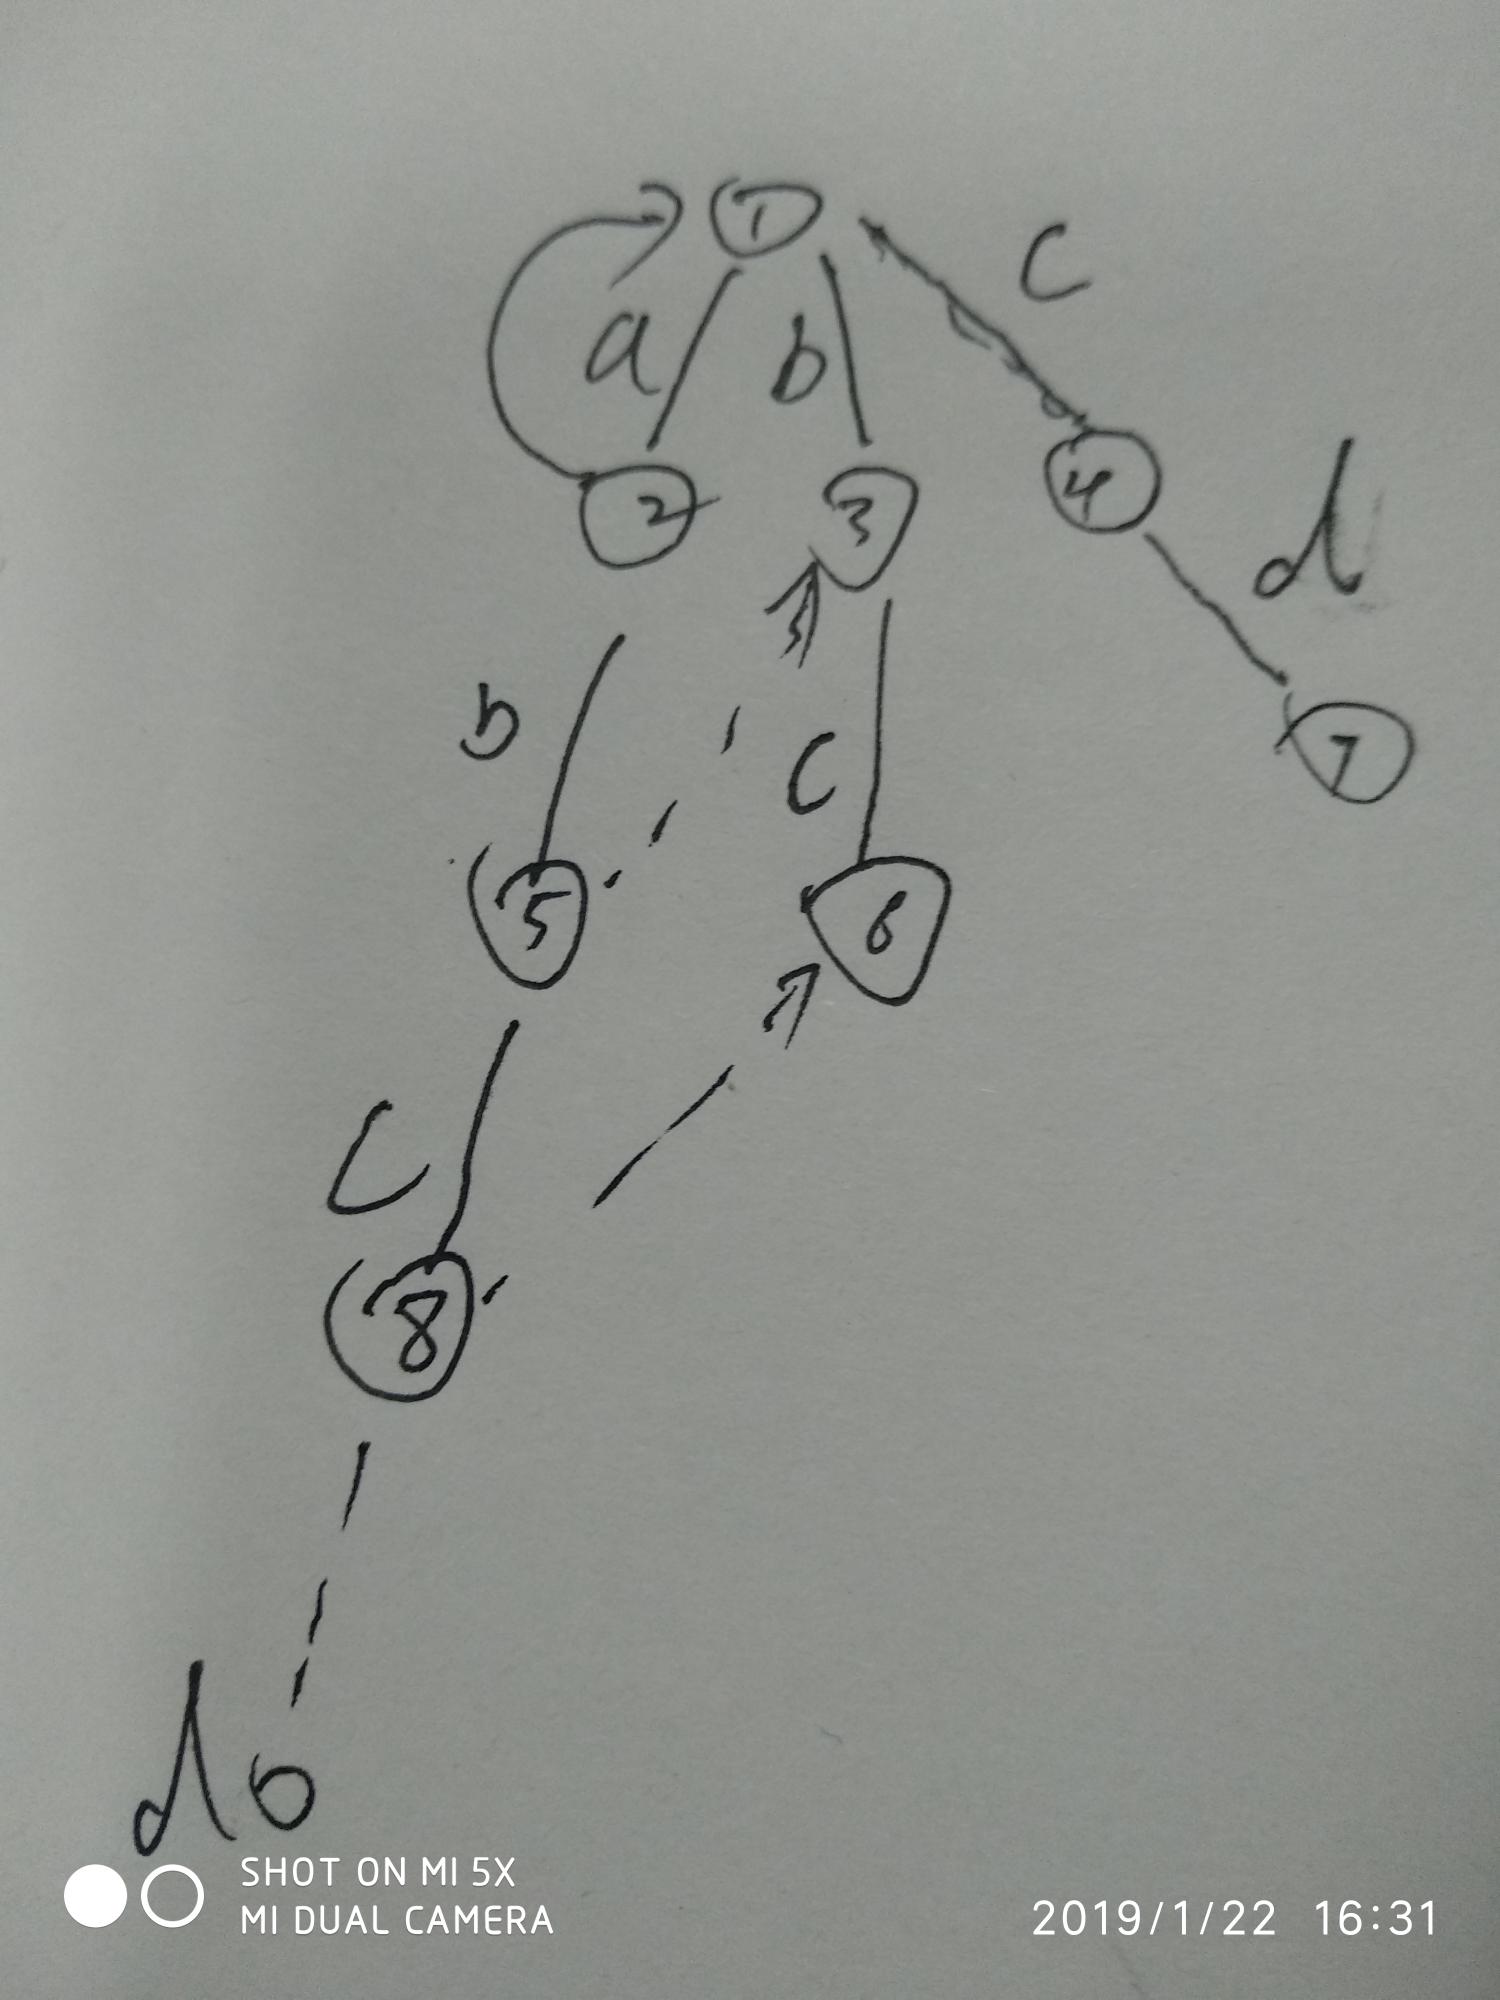 1
c
a b
2 3 4
d
b c
7
5 6
c
8
d
SHOT ON MI 5X
MI DUAL CAMERA
2019/1/22 16:31